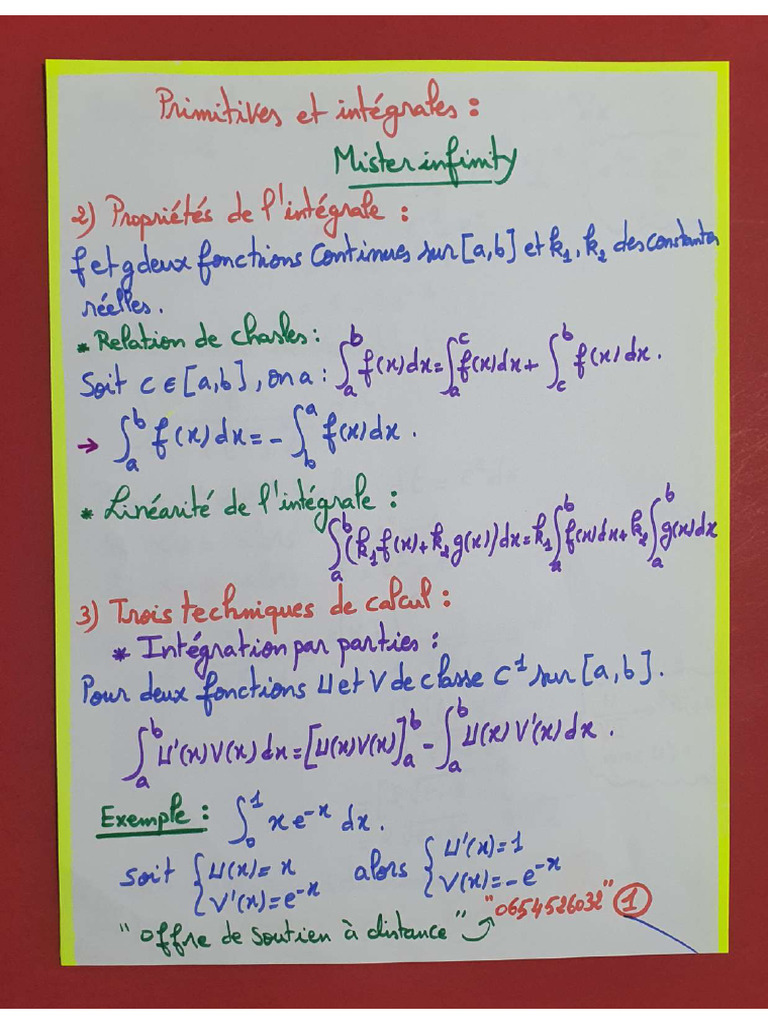 Primitives et intégrales :
Mister infinity
2) Propriétés de l'intégrale :
f et g deux fonctions continues sur [a,b] et k₁, k₂ des constantes
réelles.
* Relation de chasles :
Soit c ∈ [a,b], on a : ∫ₐᵇ f(x)dx = ∫ₐᶜ f(x)dx + ∫_c^b f(x)dx.
→ ∫ₐᵇ f(x)dx = - ∫_b^a f(x)dx.
* Linéarité de l'intégrale :
∫ₐᵇ (k₁f(x)+k₂g(x))dx = k₁∫ₐᵇ f(x)dx + k₂∫ₐᵇ g(x)dx
3) Trois techniques de calcul :
* Intégration par parties :
Pour deux fonctions U et V de classe C¹ sur [a,b].
∫ₐᵇ U'(x)V(x)dx = [U(x)V(x)]ₐᵇ - ∫ₐᵇ U(x)V'(x)dx.
Exemple : ∫₀¹ x e⁻ˣ dx.
soit { U(x) = x alors { U'(x) = 1
V'(x) = e⁻ˣ V(x) = -e⁻ˣ
"offre de soutien à distance" "0654526032" 1